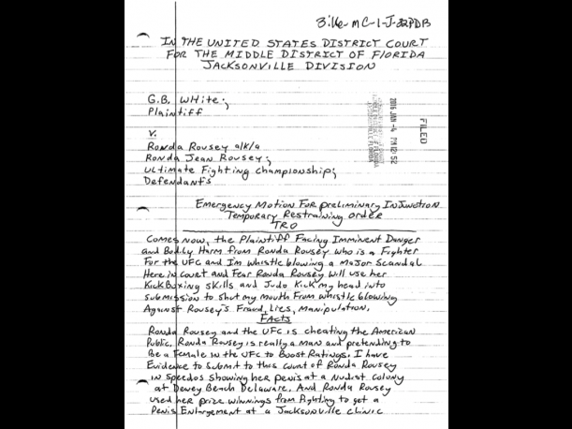 3:16-mc-1-J-32PDB
IN THE UNITED STATES DISTRICT COURT
FOR THE MIDDLE DISTRICT OF FLORIDA
JACKSONVILLE DIVISION
G.B. WHite;
Plaintiff
V.
Ronda Rousey a/k/a
Ronda Jean Rousey;
Ultimate Fighting Championship;
Defendants
FILED
2016 JAN -4 PM 12: 52
Emergency Motion For preliminary INJunction
Temporary Restraining order
TRO
Comes Now, the Plaintiff Facing Imminent Danger
and Bodily Harm from Ronda Rousey who is a Fighter
For the UFC and I'm whistle blowing a Major Scandal
Here in Court and Fear Ronda Rousey will use her
KickBoxing skills and Judo Kick my head into
submission to shut my Mouth From whistle blowing
Against Rousey's Fraud, Lies, manipulation.
FACTS
Ronda Rousey and the UFC is cheating the American
Public. Ronda Rousey is really a man and pretending to
Be a Female in the UFC to Boost Ratings. I have
Evidence to submit to this court of Ronda Rousey
in speedos showing her penis at a Nudist colony
at Dewey Beach Delaware. And Ronda Rousey
used her prize winnings from Fighting to get a
Penis Enlargement at a Jacksonville clinic